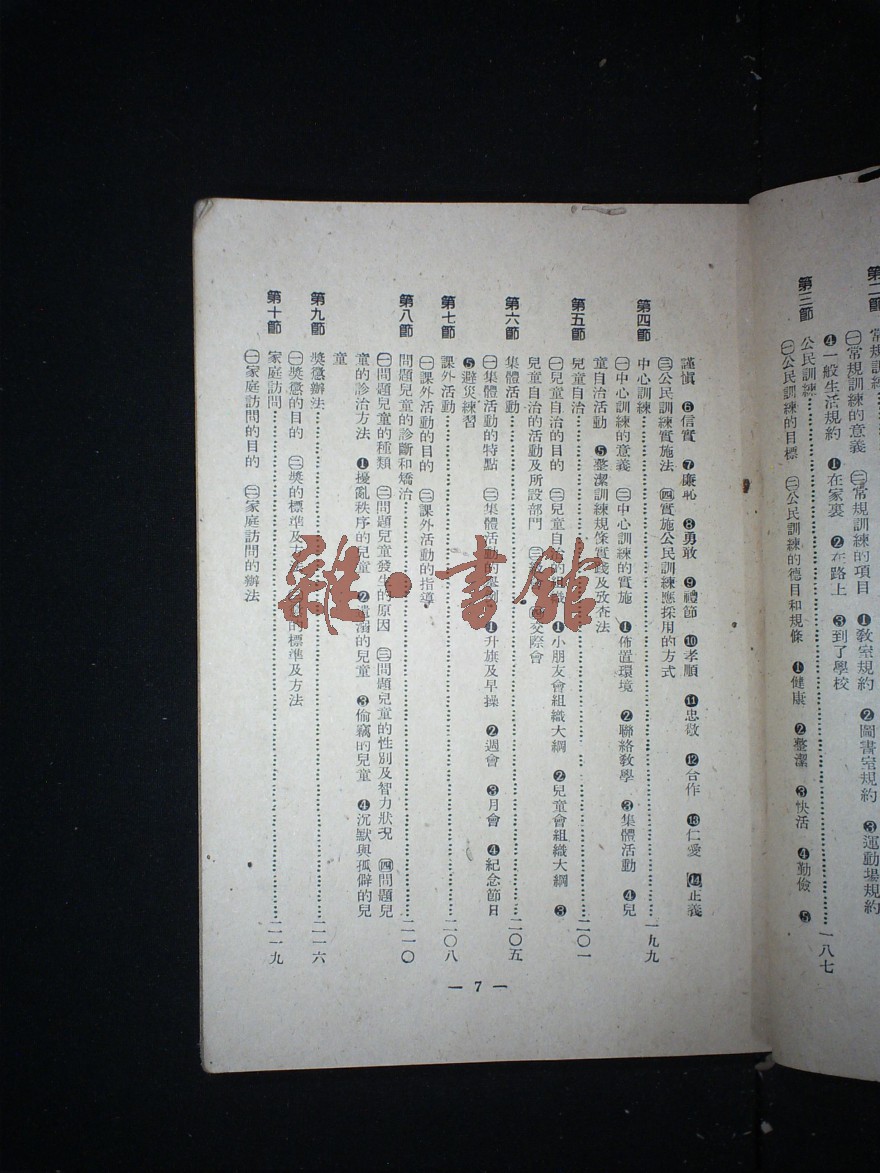 第二節
㊀常規訓練的意義 ㊁常規訓練的項目 ❶教室規約 ❷圖書室規約 ❸運動場規約
❹一般生活規約 ❶在家裏 ❷在路上 ❸到了學校
第三節 公民訓練……一八七
㊀公民訓練的目標 ㊁公民訓練的德目和規條 ❶健康 ❷整潔 ❸快活 ❹勤儉 ❺
謹慎 ❻信實 ❼廉恥 ❽勇敢 ❾禮節 ❿孝順 ⓫忠敬 ⓬合作 ⓭仁愛 ⓮正義
㊂公民訓練實施法 ㊃實施公民訓練應採用的方式
第四節 中心訓練……一九九
㊀中心訓練的意義 ㊁中心訓練的實施 ❶佈置環境 ❷聯絡敎學 ❸集體活動 ❹兒
童自治活動 ❺整潔訓練規條實踐及攷查法
第五節 兒童自治……二〇一
㊀兒童自治的目的 ㊁兒童自治的組織 ❶小朋友會組織大綱 ❷兒童會組織大綱 ❸
兒童自治的活動及所設部門 ㊂ 交際會
第六節 集體活動……二〇五
㊀集體活動的特點 ㊁集體活動的舉例 ❶升旗及早操 ❷週會 ❸月會 ❹紀念節日
❺避災練習
第七節 課外活動……二〇八
㊀課外活動的目的 ㊁課外活動的指導
第八節 問題兒童的診斷和矯治……二一〇
㊀問題兒童的種類 ㊁問題兒童發生的原因 ㊂問題兒童的性別及智力狀况 ㊃問題兒
童的診治方法 ❶擾亂秩序的兒童 ❷遺溺的兒童 ❸偷竊的兒童 ❹沉默與孤僻的兒
童
第九節 獎懲辦法……二一六
㊀獎懲的目的 ㊁獎的標準及方 的標準及方法
第十節 家庭訪問……二一九
㊀家庭訪問的目的 ㊁家庭訪問的辦法
— 7 —
雜·書館